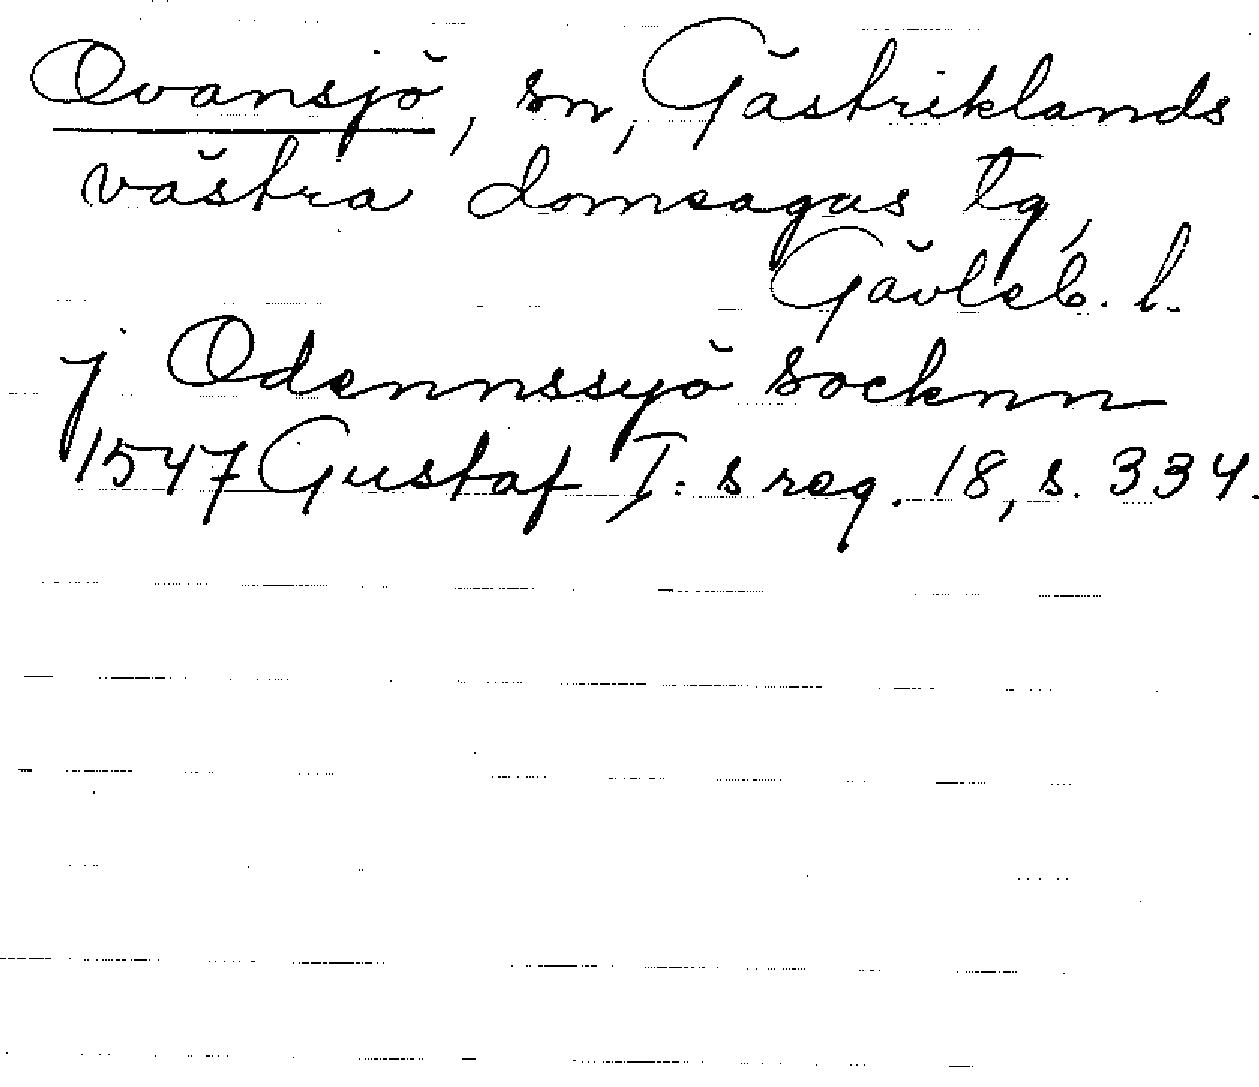 Ovansjö, sn, Gästriklands
västra domsagas tg,
Gävleb. l.
j Odennssyö socknn
1547 Gustaf I:s reg. 18, s. 334.